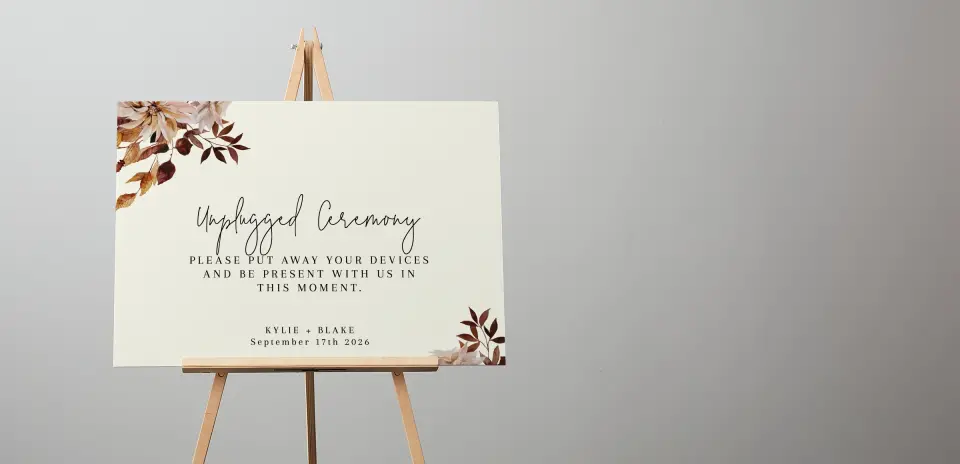 Unplugged Ceremony
PLEASE PUT AWAY YOUR DEVICES
AND BE PRESENT WITH US IN
THIS MOMENT.
KYLIE + BLAKE
September 17th 2026